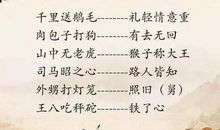 千里送鹅毛--------礼轻情意重
肉包子打狗--------有去无回
山中无老虎--------猴子称大王
司马昭之心--------路人皆知
外甥打灯笼--------照旧（舅）
王八吃秤砣--------铁了心